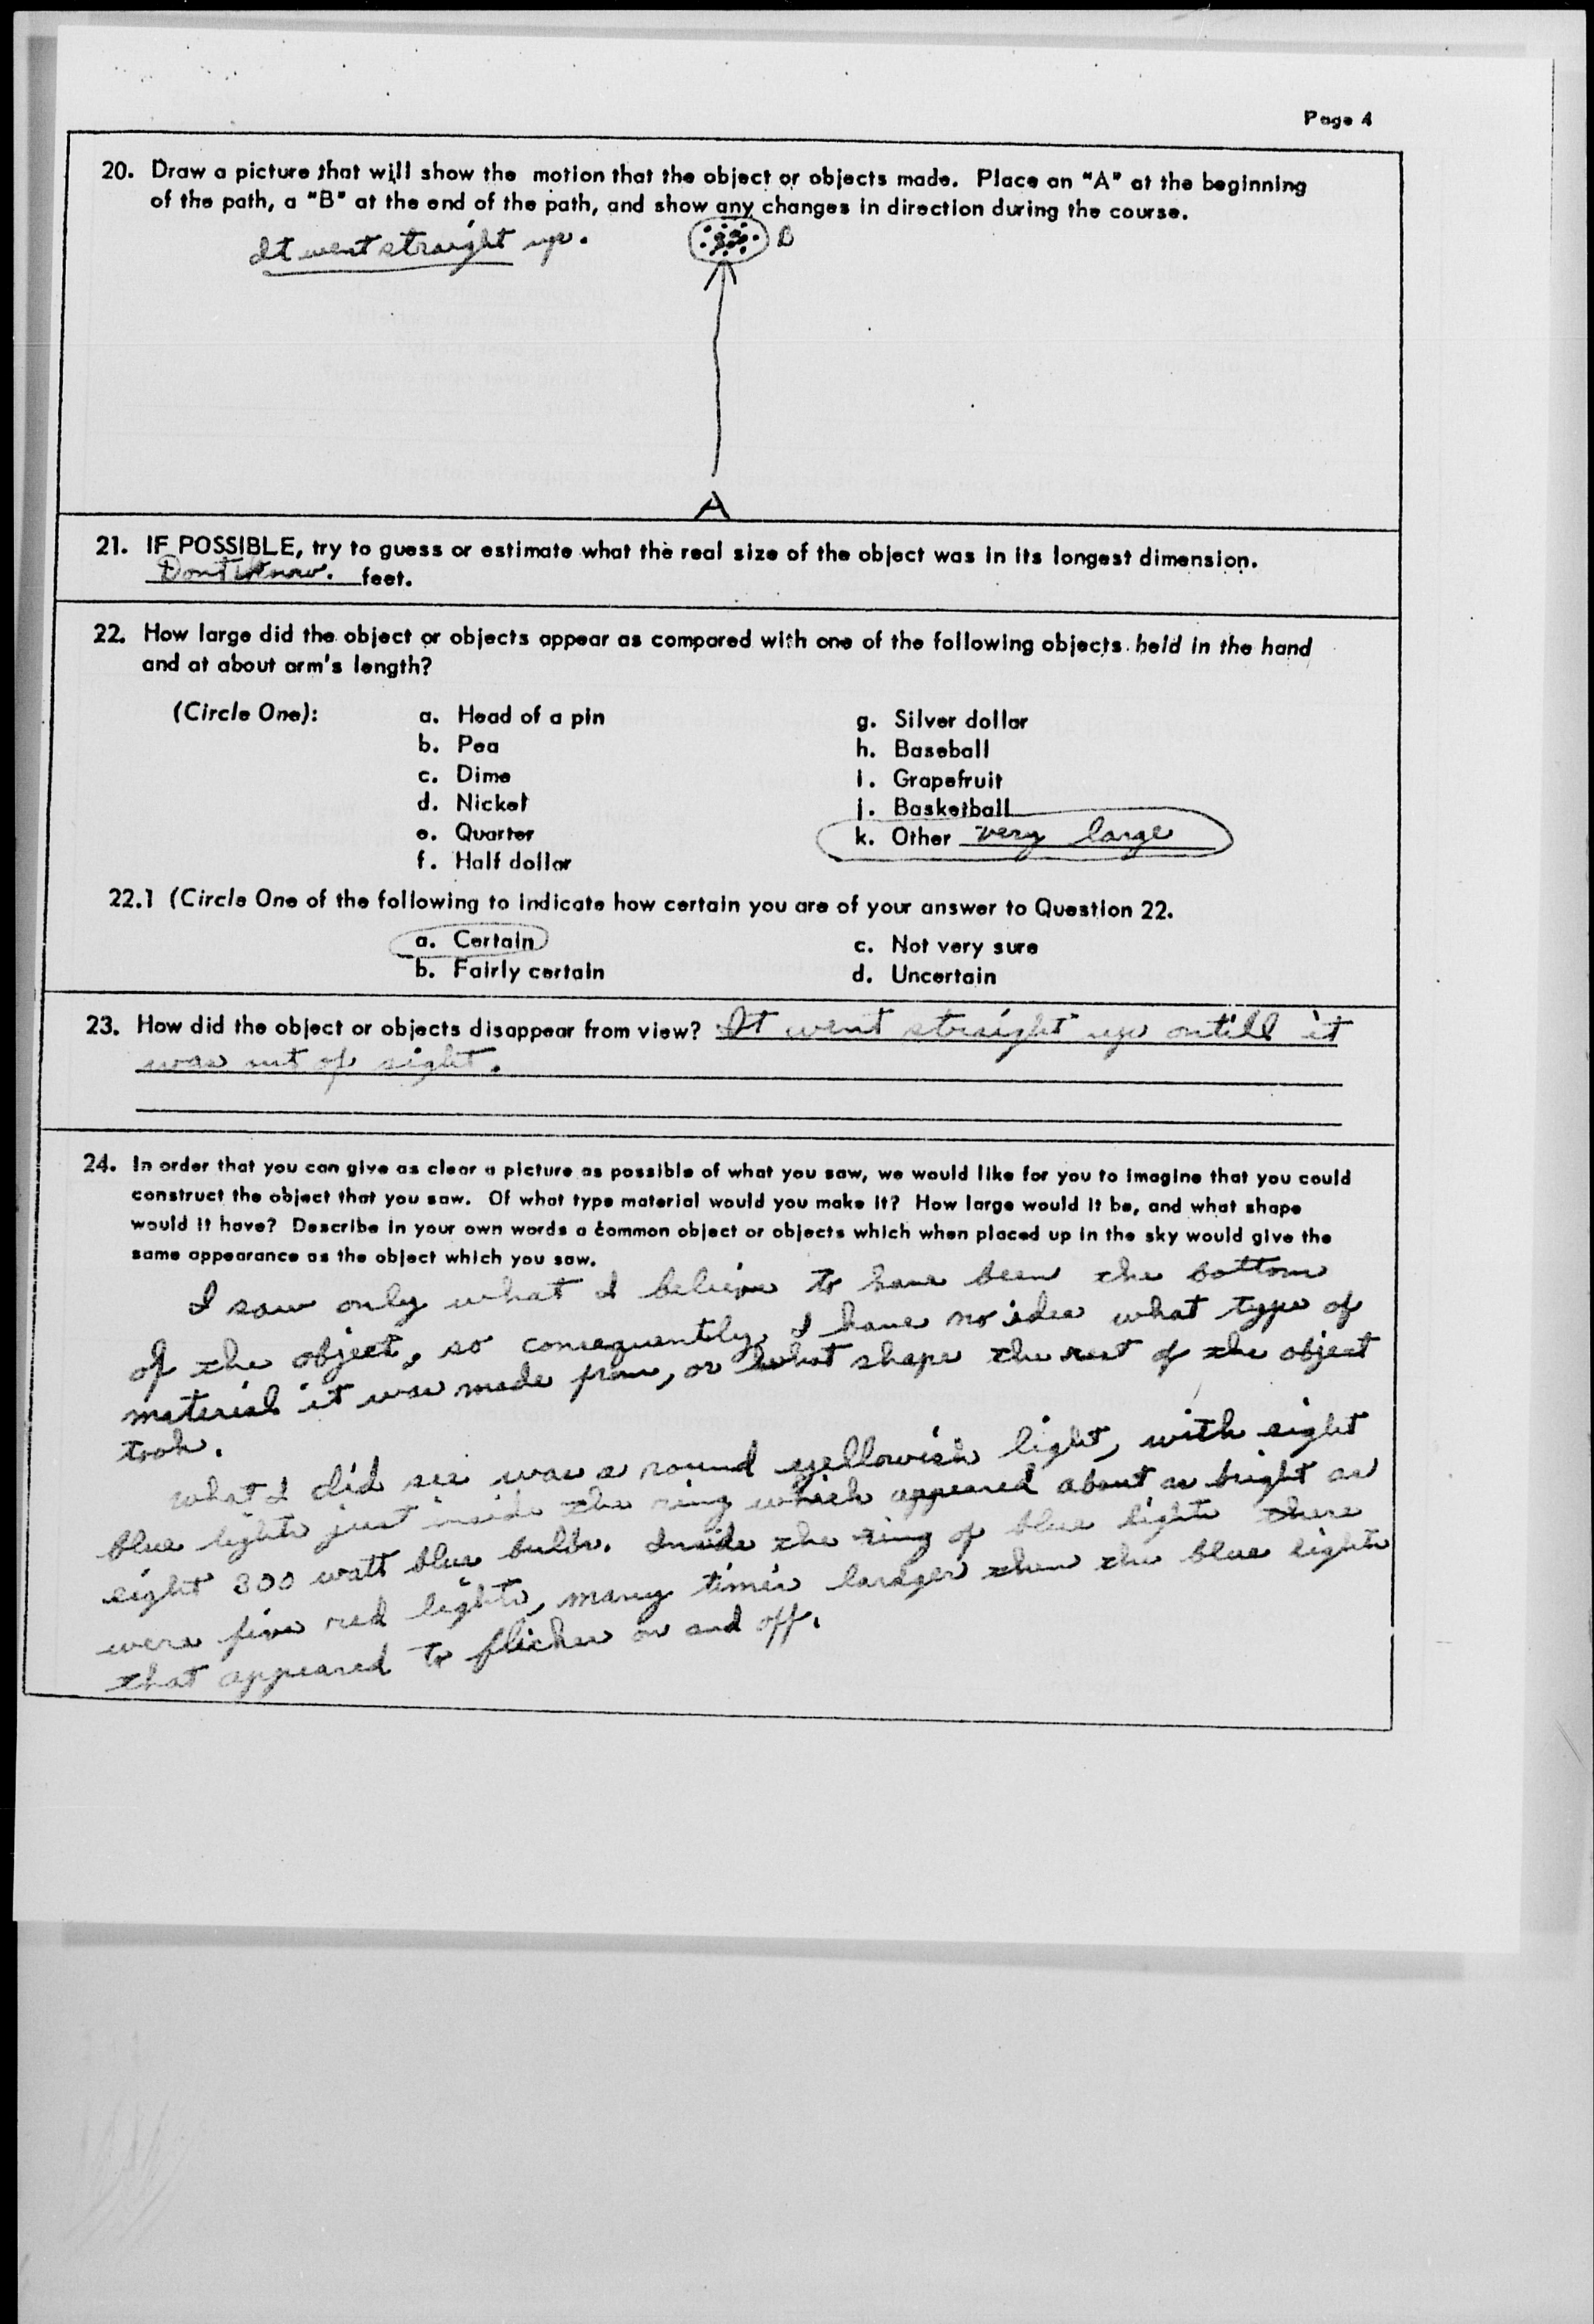 Page 4
20. Draw a picture that will show the motion that the object or objects made. Place an "A" at the beginning
of the path, a "B" at the end of the path, and show any changes in direction during the course.
It went straight up.
B
A
21. IF POSSIBLE, try to guess or estimate what the real size of the object was in its longest dimension.
Dont know. feet.
22. How large did the object or objects appear as compared with one of the following objects held in the hand
and at about arm's length?
(Circle One):
a. Head of a pin
b. Pea
c. Dime
d. Nickel
e. Quarter
f. Half dollar
g. Silver dollar
h. Baseball
i. Grapefruit
j. Basketball
k. Other very large
22.1 (Circle One of the following to indicate how certain you are of your answer to Question 22.
a. Certain
b. Fairly certain
c. Not very sure
d. Uncertain
23. How did the object or objects disappear from view? It went straight up ontill it
was out of sight.
24. In order that you can give as clear a picture as possible of what you saw, we would like for you to imagine that you could
construct the object that you saw. Of what type material would you make it? How large would it be, and what shape
would it have? Describe in your own words a common object or objects which when placed up in the sky would give the
same appearance as the object which you saw.
I saw only what I believe to have been the bottom
of the object, so consequently, I have no idea what type of
material it was made from, or what shape the rest of the object
took.
What I did see was a round yellowish light, with eight
blue lights just inside the ring which appeared about as bright as
eight 300 watt blue bulbs. Inside the ring of blue lights there
were five red lights, many times lardger then the blue lights
that appeared to flicker on and off.